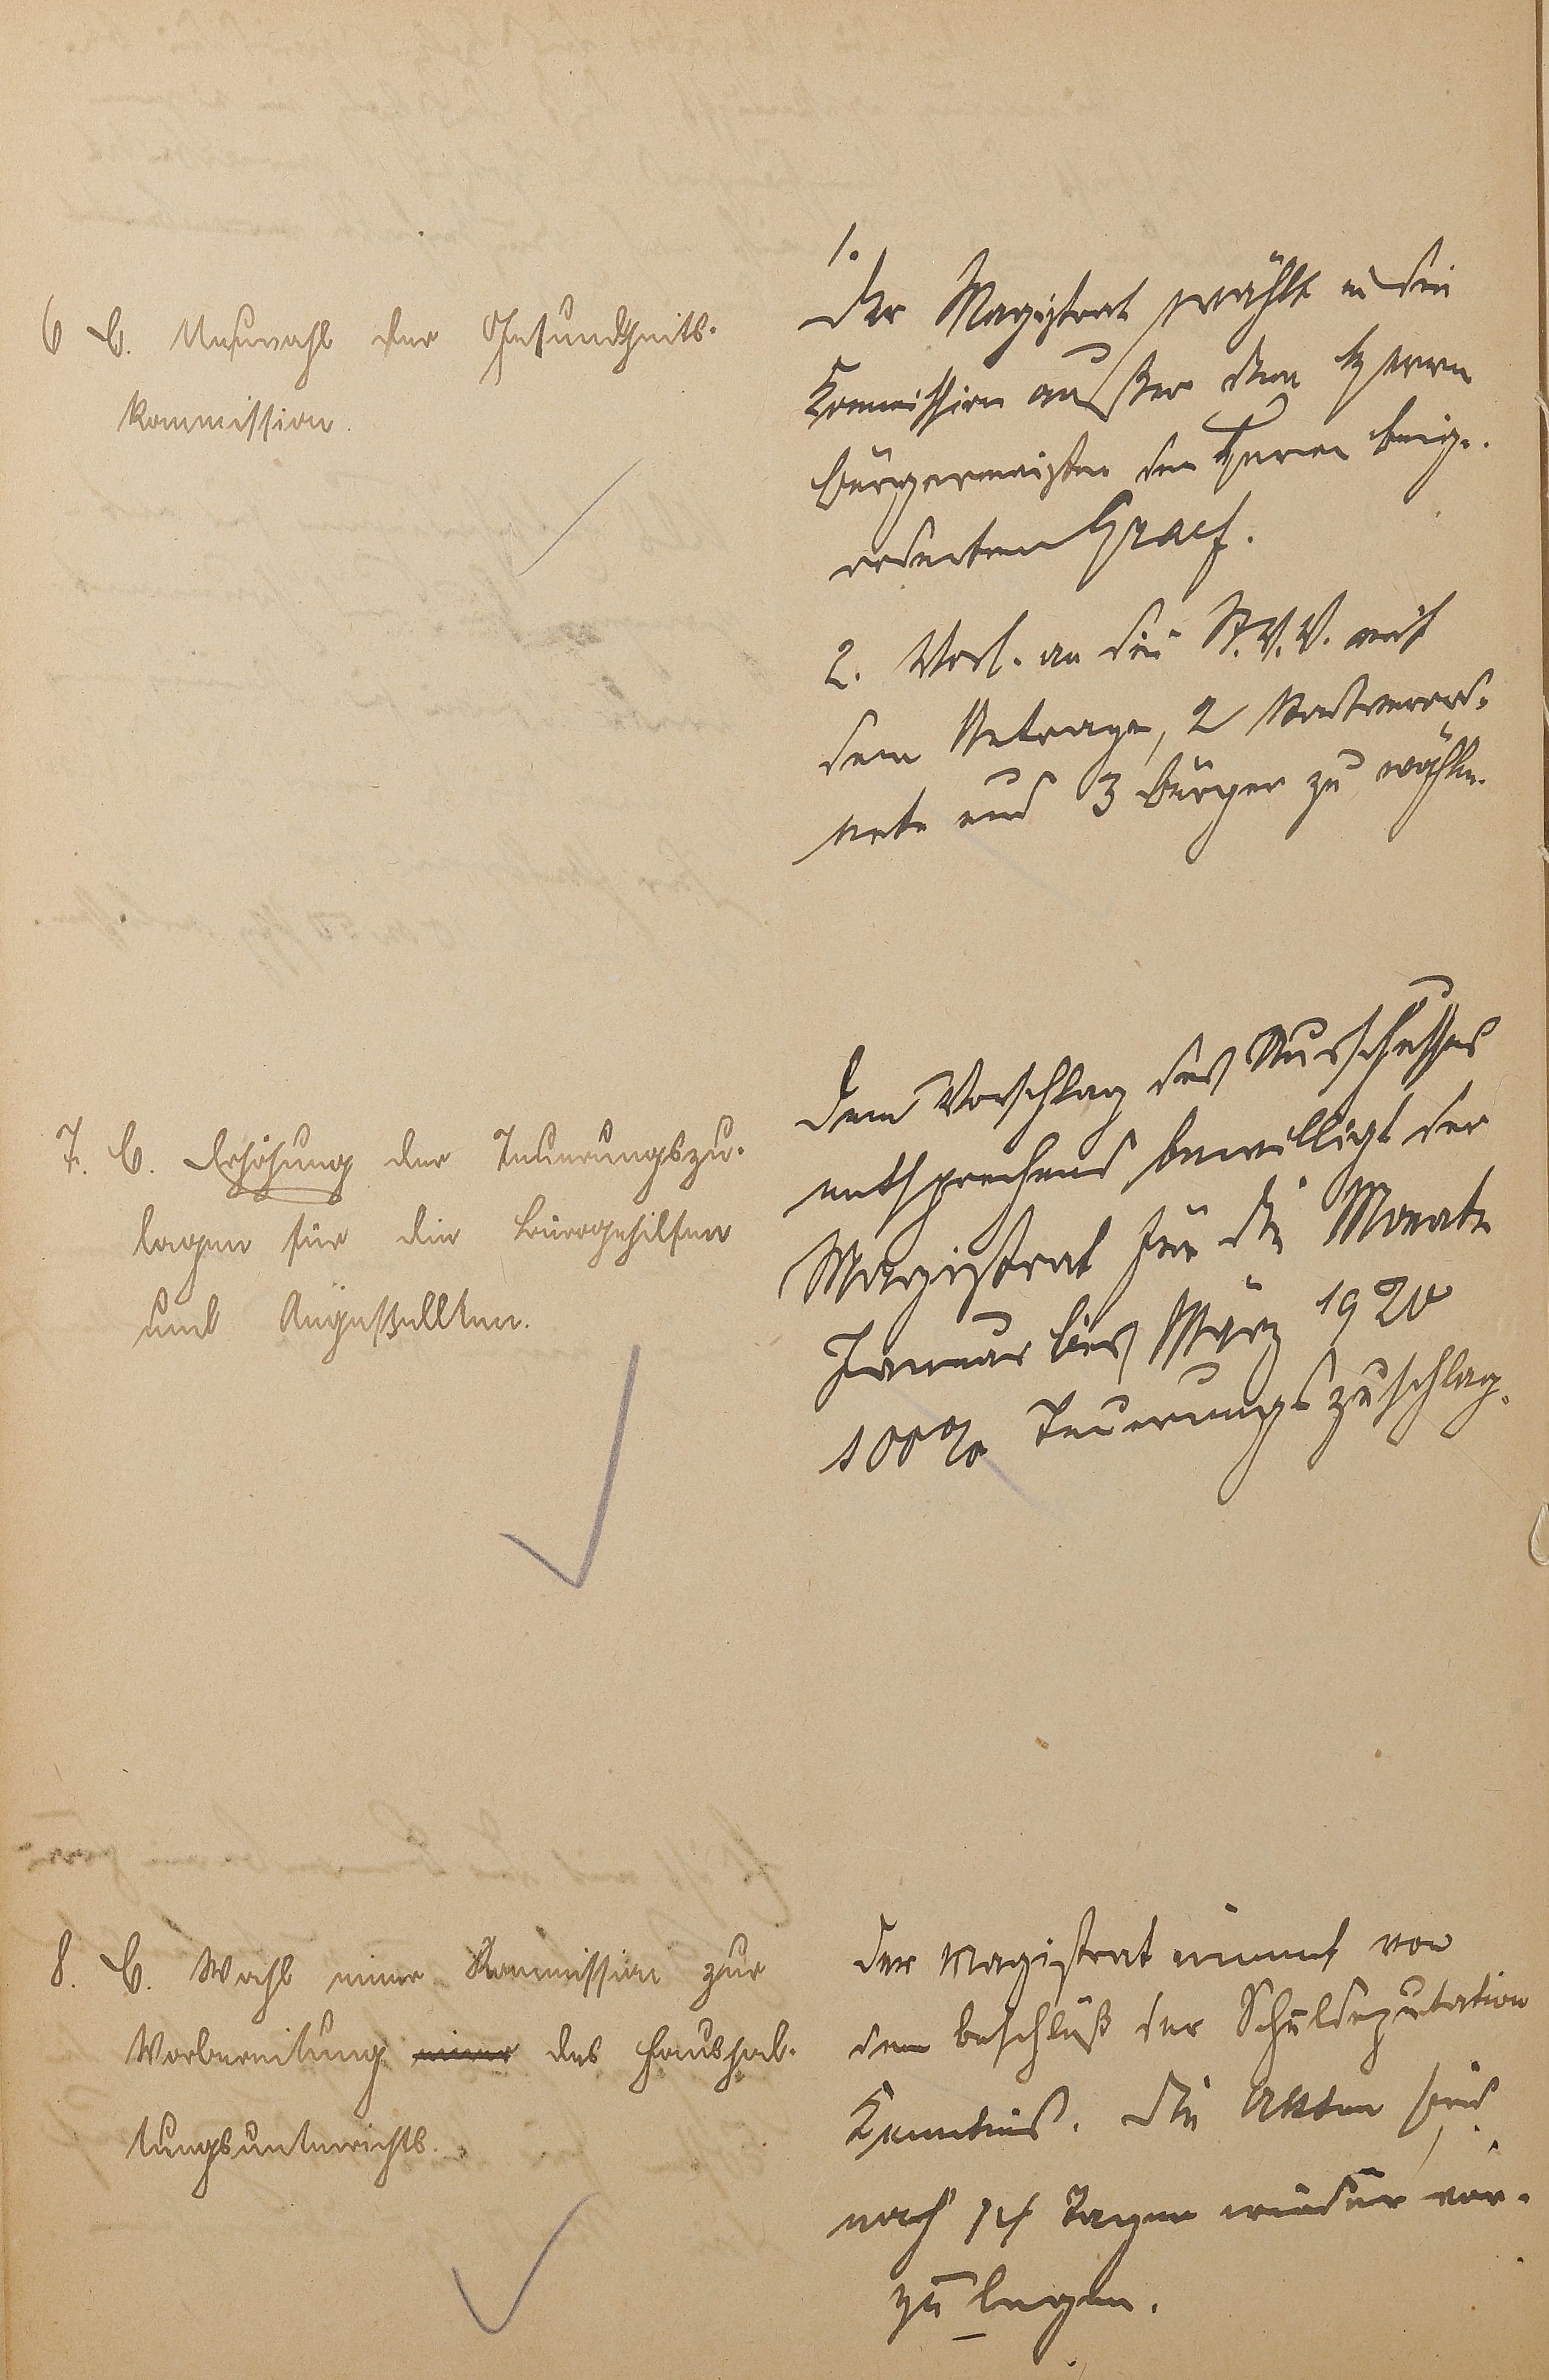 6 C. Neuwahl der Gesundheits-
kommission.
1.
Der Magistrat wählt in die
Kommission außer dem Herrn
Bürgermeister den Herrn Beige-
ordneten Graef.
2. Vorl. an die St.V.V. mit
dem Antrage, 2 Stadtverord-
nete und 3 Bürger zu wählen.
7. C. Erhöhung der Teuerungszu-
lagen für die Bürogehilfen
und Angestellten.
Dem Vorschlag des Ausschusses
entsprechend bewilligt der
Magistrat für die Monate
Januar bis März 1920
100% Teuerungszuschlag.
8. C. Wahl einer Kommission zur
Vorbereitung einer des Haushal-
tungsunterrichts.
Der Magistrat nimmt von
dem Beschluß der Schuldeputation
Kenntnis. Die Akten sind
nach 14 Tagen wieder vor-
zulegen.